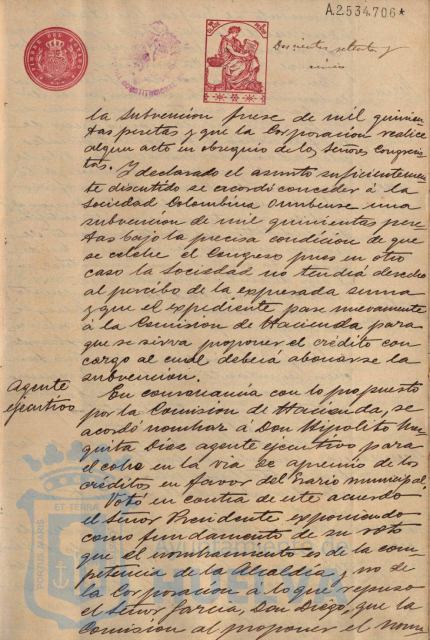 A.2.534.706*
Doscientos setenta y
cinco
la subvencion fuese de mil quinien-
tas pesetas y que la Corporacion realice
algun acto en obsequio de los Señores Congresis-
tas. Y declarado el asunto suficientemen-
te discutido se acordó conceder á la
Sociedad Colombina Onubense una
subvencion de mil quinientas pese-
tas bajo la precisa condicion de que
se celebre el Congreso pues en otro
caso la Sociedad no tendrá derecho
al percibo de la expresada suma
y que el expediente pase nuevamente
á la Comision de Hacienda para
que se sirva proponer el crédito con
cargo al cual deberá abonarse la
subvencion.
Agente
ejecutivos
En consonancia con lo propuesto
por la Comision de Hacienda, se
acordó nombrar á Don Hipolito
Diez agente ejecutivos para
el cobro en la via de apremio de los
créditos en favor del Erario municipal.
Votó en contra de este acuerdo
el Señor Presidente exponiendo
como fundamento de su voto
que el nombramiento es de la com-
petencia de la Alcaldía y no de
la Corporacion á lo que repuso
el Señor Garcia, Don Diego, que la
Comision al proponer el nom
PORTUS MARIS
ET TERRÆ